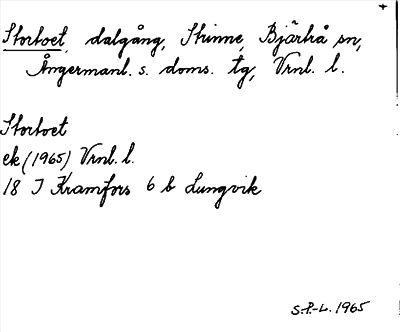 Storboet, dalgång, Skinne, Bjärtrå sn,
Ångermanl. s. doms. tg, Vrnl. l.
Storboet
ek (1965) Vrnl. l.
18 I Kramfors 6 b Lungvik
S.P.-L. 1965